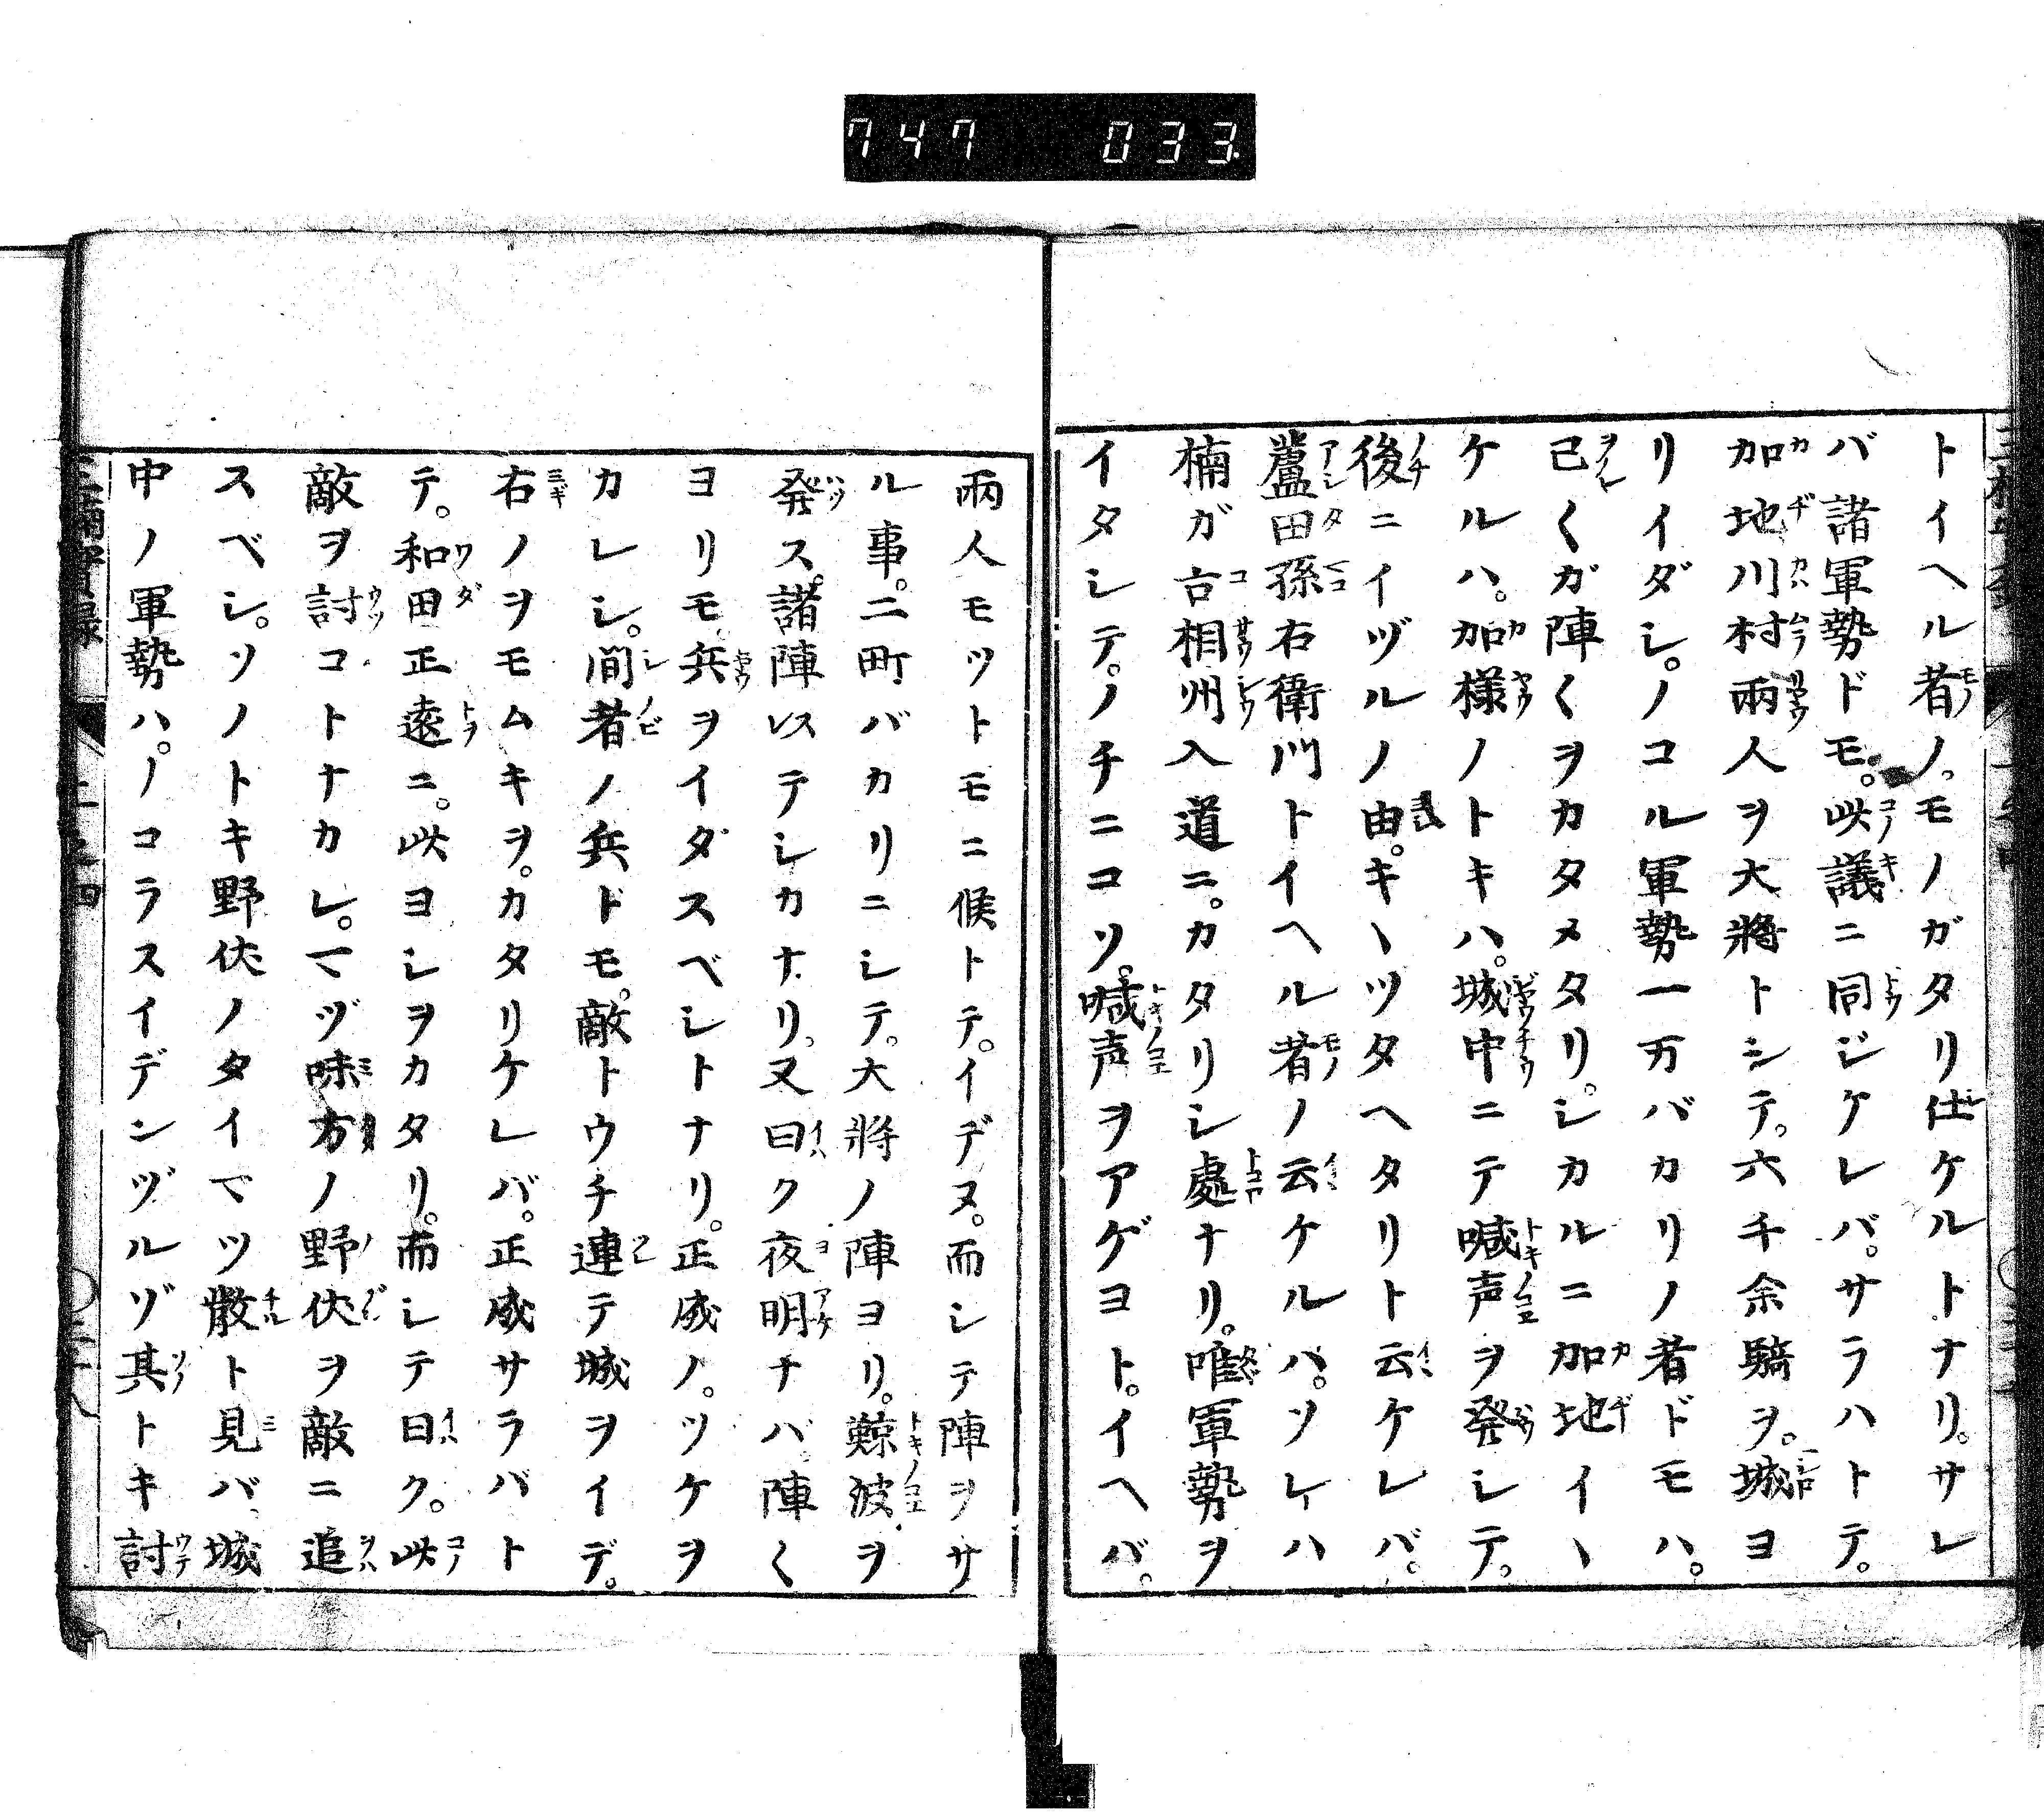 747 033
トイヘル者ノ。モノガタリ仕ケルトナリ。サレ
バ諸軍勢ドモ。此議ニ同ジケレバ。サラハトテ。
加地川村兩人ヲ大將トシテ。六千余騎ヲ。城ヨ
リイダシ。ノコル軍勢一万バカリノ者ドモハ。
己〱ガ陣〱ヲカタメタリ。シカルニ加地イヽ
ケルハ。加様ノトキハ。城中ニテ喊声ヲ発シテ。
後ニイヅルノ由。キヽツタヘタリト云ケレバ。
蘆田孫右衛門トイヘル者ノ云ケルハ。ソレハ
楠ガ古相州入道ニ。カタリシ處ナリ。唯軍勢ヲ
イタシテ。ノチニコソ。喊声ヲアゲヨト。イヘバ。
兩人モツトモニ候トテ。イデヌ。而シテ陣ヲサ
ル事。二町バカリニシテ。大將ノ陣ヨリ。鯨波ヲ
発ス。諸陣レステシカナリ。又曰ク夜明ナバ。陣〱
ヨリモ兵ヲイダスベシトナリ。正成ノ。ツケヲ
カレシ。間者ノ兵ドモ。敵トウチ連テ城ヲイデ。
右ノヲモムキヲ。カタリケレバ。正成サラバト
テ。和田正遠ニ。此ヨシヲカタリ。而シテ曰ク。此
敵ヲ討コトナカレ。マヅ味方ノ野伏ヲ敵ニ追
スベシ。ソノトキ野伏ノタイマツ散ト見バ、城
中ノ軍勢ハ。ノコラスイデンヅルゾ其トキ討